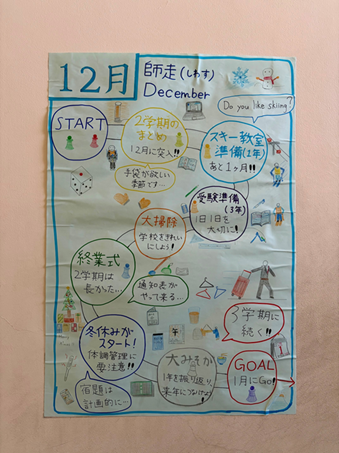 12月
師走(しわす)
December
Do you like skiing?
START
2学期の
まとめ
12月に突入!!
手袋が欲しい
季節です…
スキー教室
準備(1年)
あと1ヶ月!!
受験準備
(3年)
1日1日を
大切に!
大掃除
学校をきれい
にしよう!
終業式
2学期は
長かった…
通知表が
やって来る…
3学期に
続く!!
冬休みが
スタート!
体調管理に
要注意!!
宿題は
計画的に…
大みそか
1年を振り返り、
来年につなげよう!
GOAL
1月にGo!